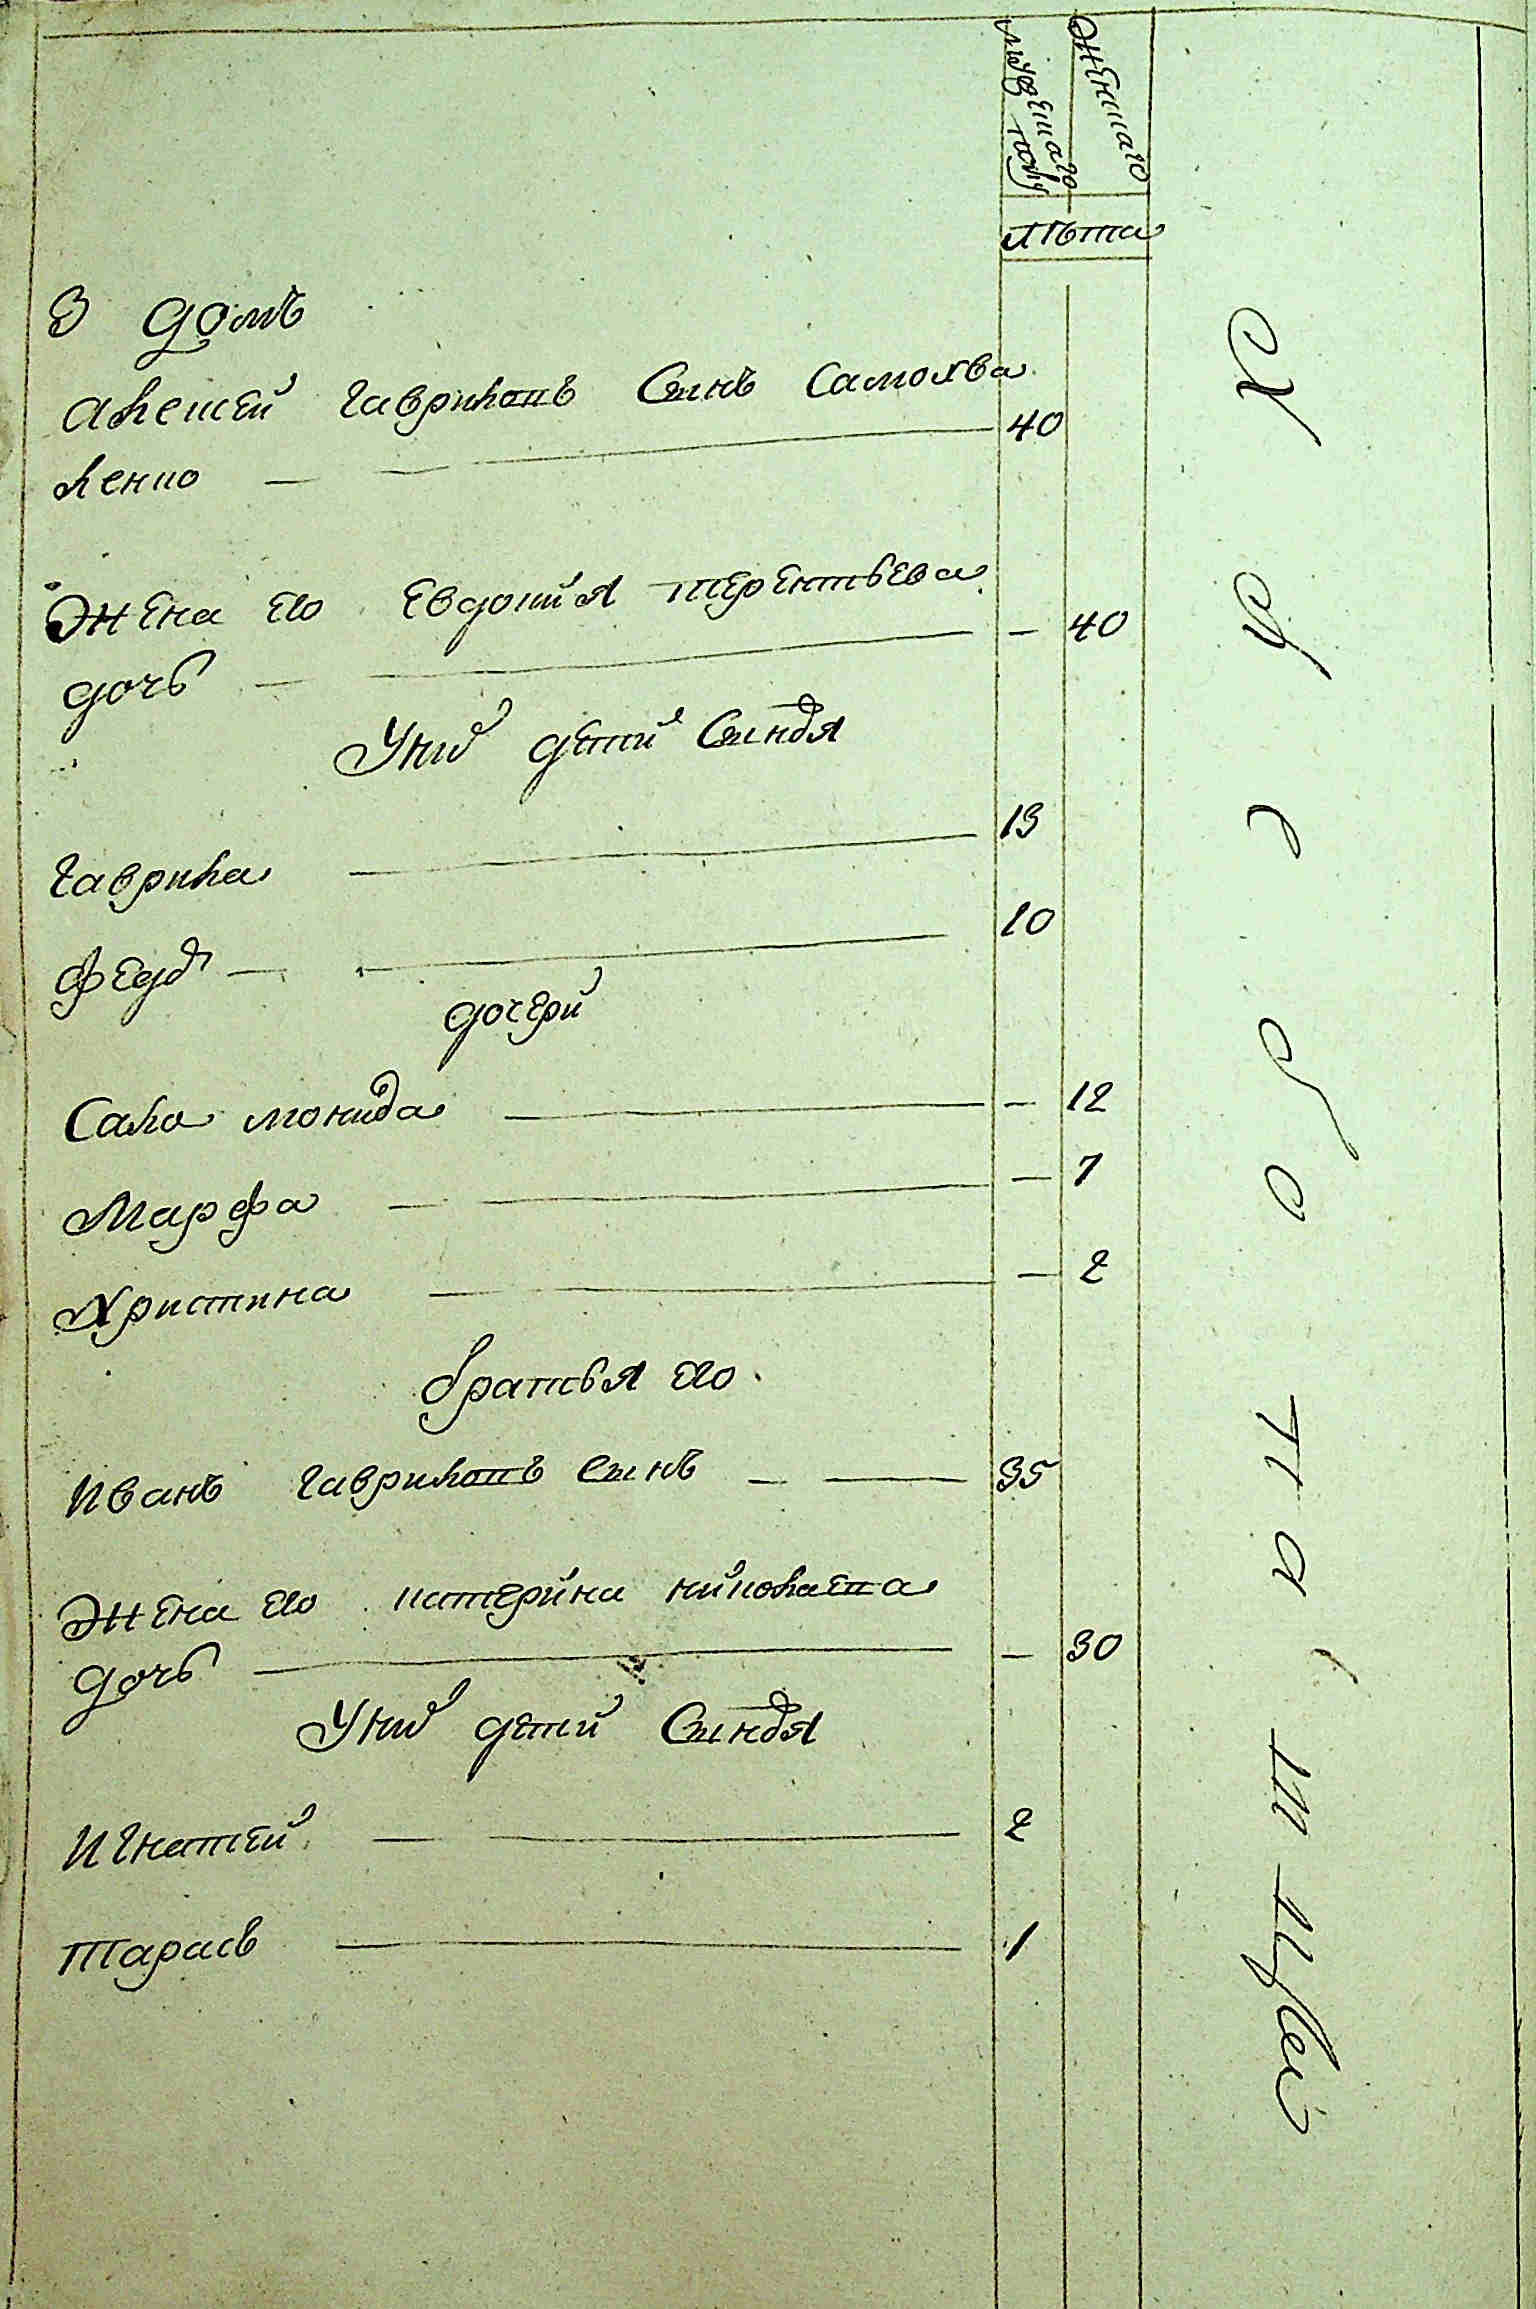 мужешаго полу
женшаго
лѣта
3 домъ
Алешѣй Гавриловъ Синъ Самохва
ленко — 40
Жена его Евдокия терентьева
дочь — — 40
У них дети Синовя
Гаврила — 13
Федор — 10
дочери
Сало монида — — 12
Марфа — — 7
Христина — — 2
братья его
Иванъ Гавриловъ Синъ — 35
Жена его катерина николаева
дочь — — 30
У них дети Синовя
Игнатей — 2
Тарасъ — 1